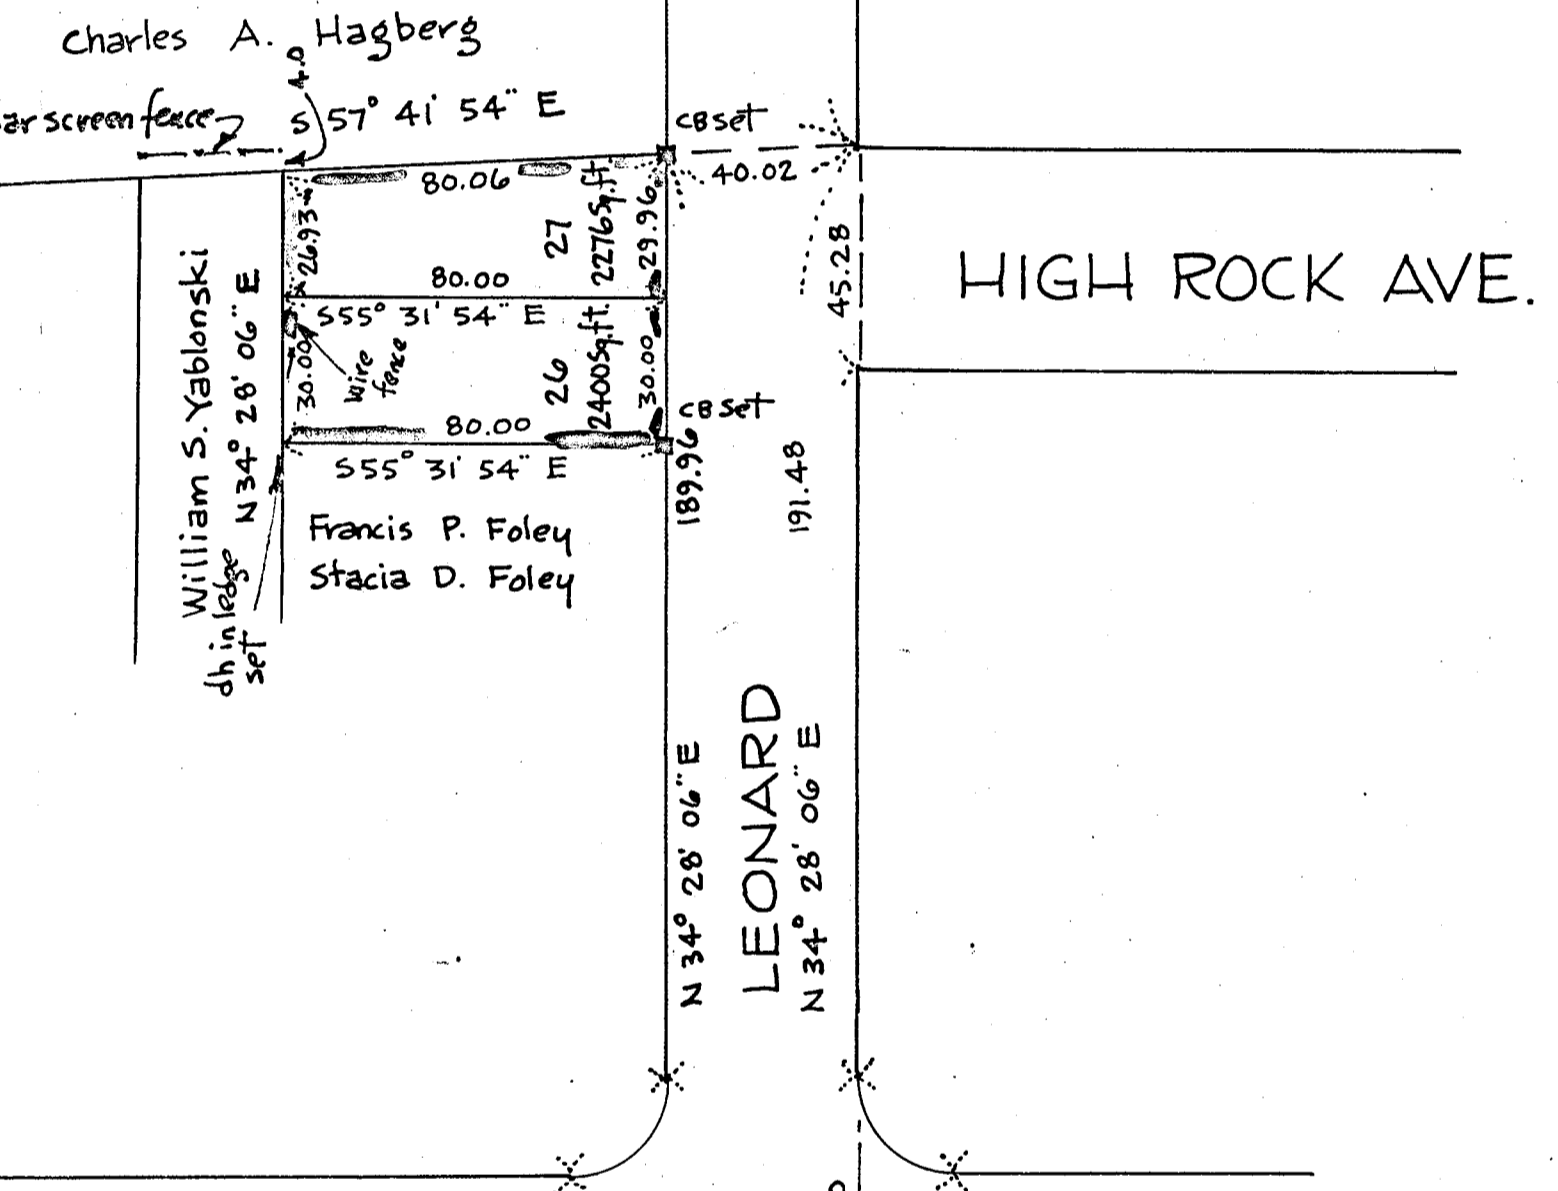 Charles A. Hagberg
4.0
ar screen fence
S 57° 41' 54" E
CB set
80.06
40.02
26.93
27
2276 Sq.ft.
29.96
45.28
HIGH ROCK AVE.
80.00
S55° 31' 54" E
William S. Yablonski
N34° 28' 06" E
30.00
wire
fence
26
2400 Sq.ft.
30.00
CB set
80.00
S55° 31' 54" E
189.96
191.48
Francis P. Foley
Stacia D. Foley
dh in ledge
set
N 34° 28' 06" E
LEONARD
N 34° 28' 06" E